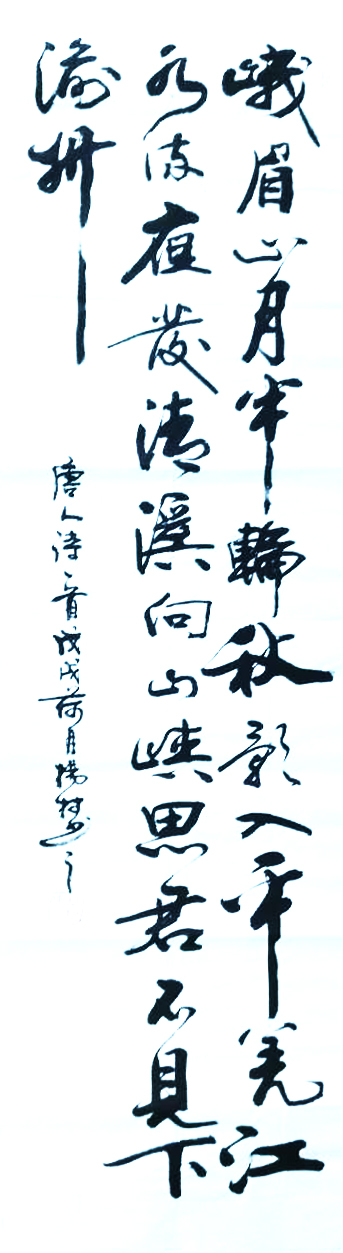 峨眉山月半輪秋影入平羌江
水流夜發清溪向山峽思君不見下
渝州
唐人詩一首戊戌荷月楊